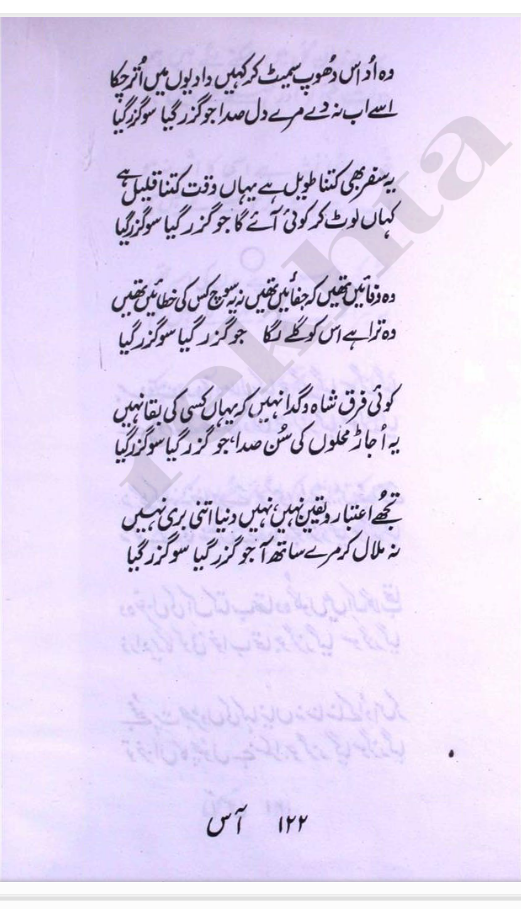 وہ اُداس دھوپ سمیٹ کر کہیں وادیوں میں اُتر چکا
اسے اب نہ دے مرے دل صدا جو گزر گیا سو گزر گیا
یہ سفر بھی کتنا طویل ہے یہاں وقت کتنا قلیل ہے
کہاں لوٹ کر کوئی آئے گا جو گزر گیا سو گزر گیا
وہ وفائیں تھیں کہ جفائیں تھیں نہ یہ سوچ کس کی خطائیں تھیں
وہ ترا ہے اس کو گلے لگا جو گزر گیا سو گزر گیا
کوئی فرق شاہ و گدا نہیں کہ یہاں کسی کی بقا نہیں
یہ اُجاڑ محلوں کی سُن صدا، جو گزر گیا سو گزر گیا
تجھے اعتبار و یقین نہیں، نہیں دنیا اتنی بری نہیں
نہ ملال کر مرے ساتھ آ جو گزر گیا سو گزر گیا
۱۲۲ آس
rekhta